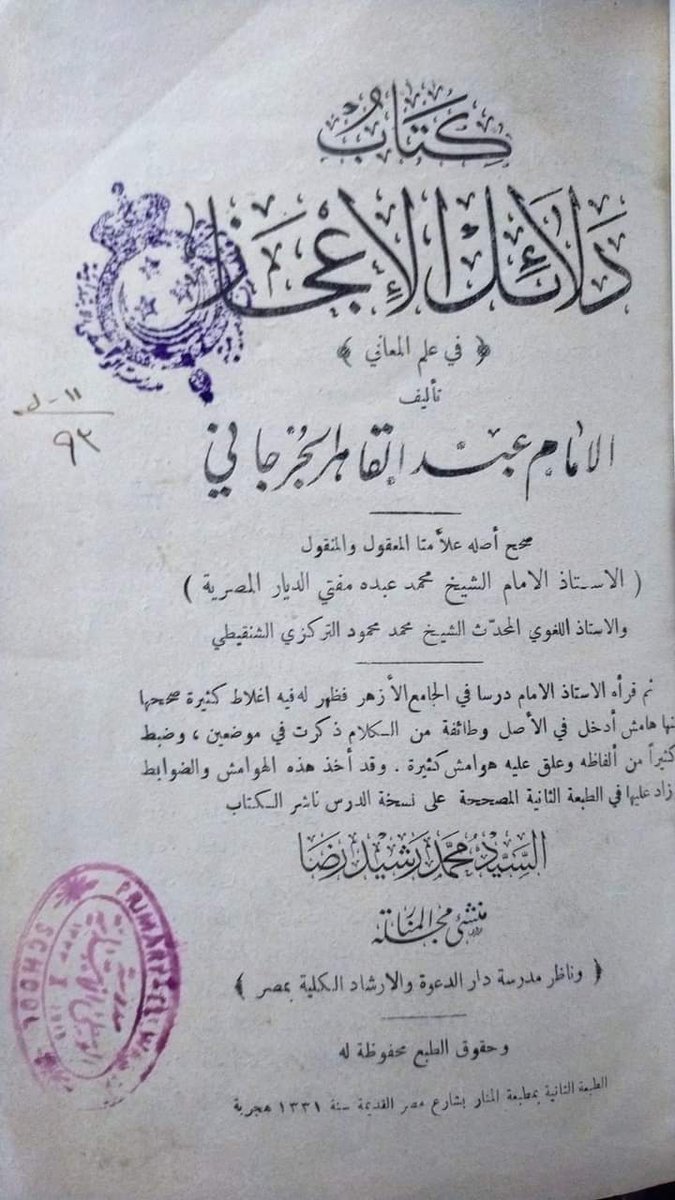 كِتَابُ
دَلَائِلِ الإِعْجَازِ
﴿ في علم المعاني ﴾
تأليف
الامام عبد القاهر الجرجاني
صحح أصله علاّمتا المعقول والمنقول
( الاستاذ الامام الشيخ محمد عبده مفتي الديار المصرية )
والاستاذ اللغوي المحدّث الشيخ محمد محمود التركزي الشنقيطي
ثم قرأه الاستاذ الامام درسا في الجامع الأزهر فظهر له فيه اغلاط كثيرة صححها
هامش أدخل في الأصل وطائفة من الكلام ذكرت في موضعين ، وضبط
كثيراً من ألفاظه وعلق عليه هوامش كثيرة . وقد أخذ هذه الهوامش والضوابط
زاد عليها في الطبعة الثانية المصححة على نسخة الدرس ناشر الكتاب
السيد محمد رشيد رضا
منشئ مجلة المنار
﴿ وناظر مدرسة دار الدعوة والارشاد الكلية بمصر ﴾
وحقوق الطبع محفوظة له
الطبعة الثانية بمطبعة المنار بشارع مصر القديمة سنة ١٣٣١ هجرية
٩٢
PRIMARY
SCHOOL
مدرسة